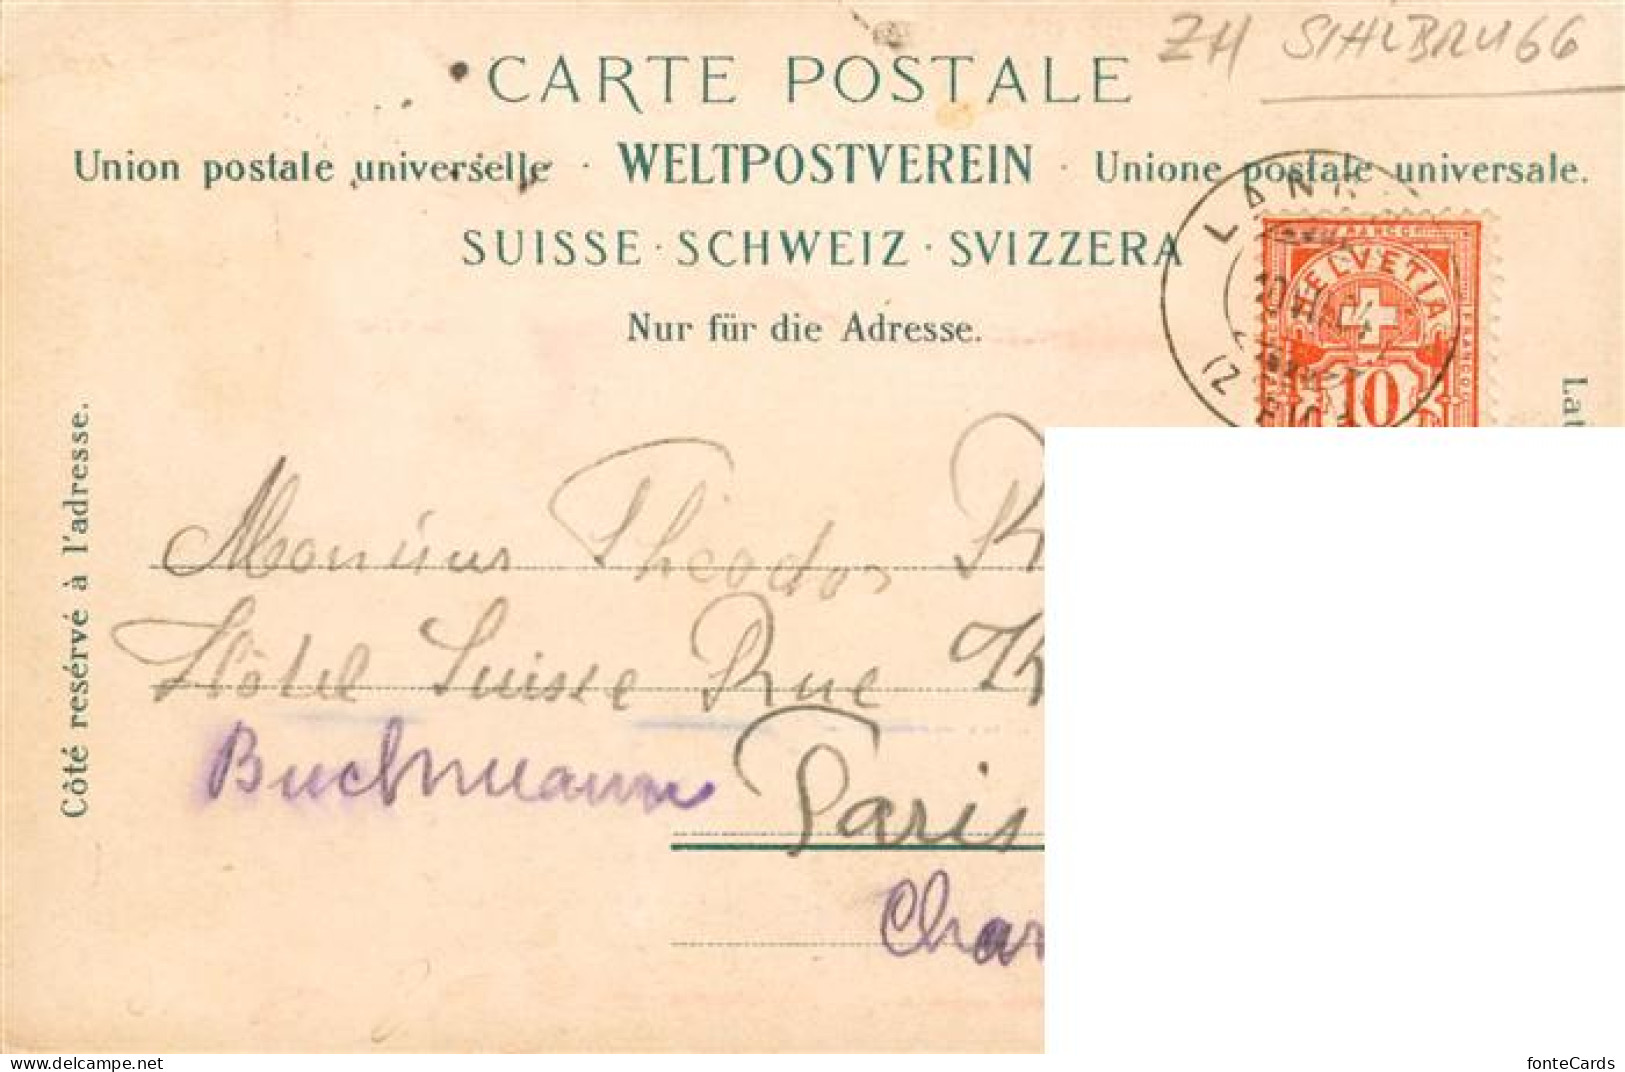 ZH SIHLBRUGG
CARTE POSTALE
Union postale universelle · WELTPOSTVEREIN · Unione postale universale.
SUISSE · SCHWEIZ · SVIZZERA
Nur für die Adresse.
FRANCO
HELVETIA
FRANCO
10
LANG
(Z
Lat
Côté resérvé à l'adresse.
Monsieur Theodor
Hôtel Suisse Rue
Buchmann Paris
Char
fonteCards